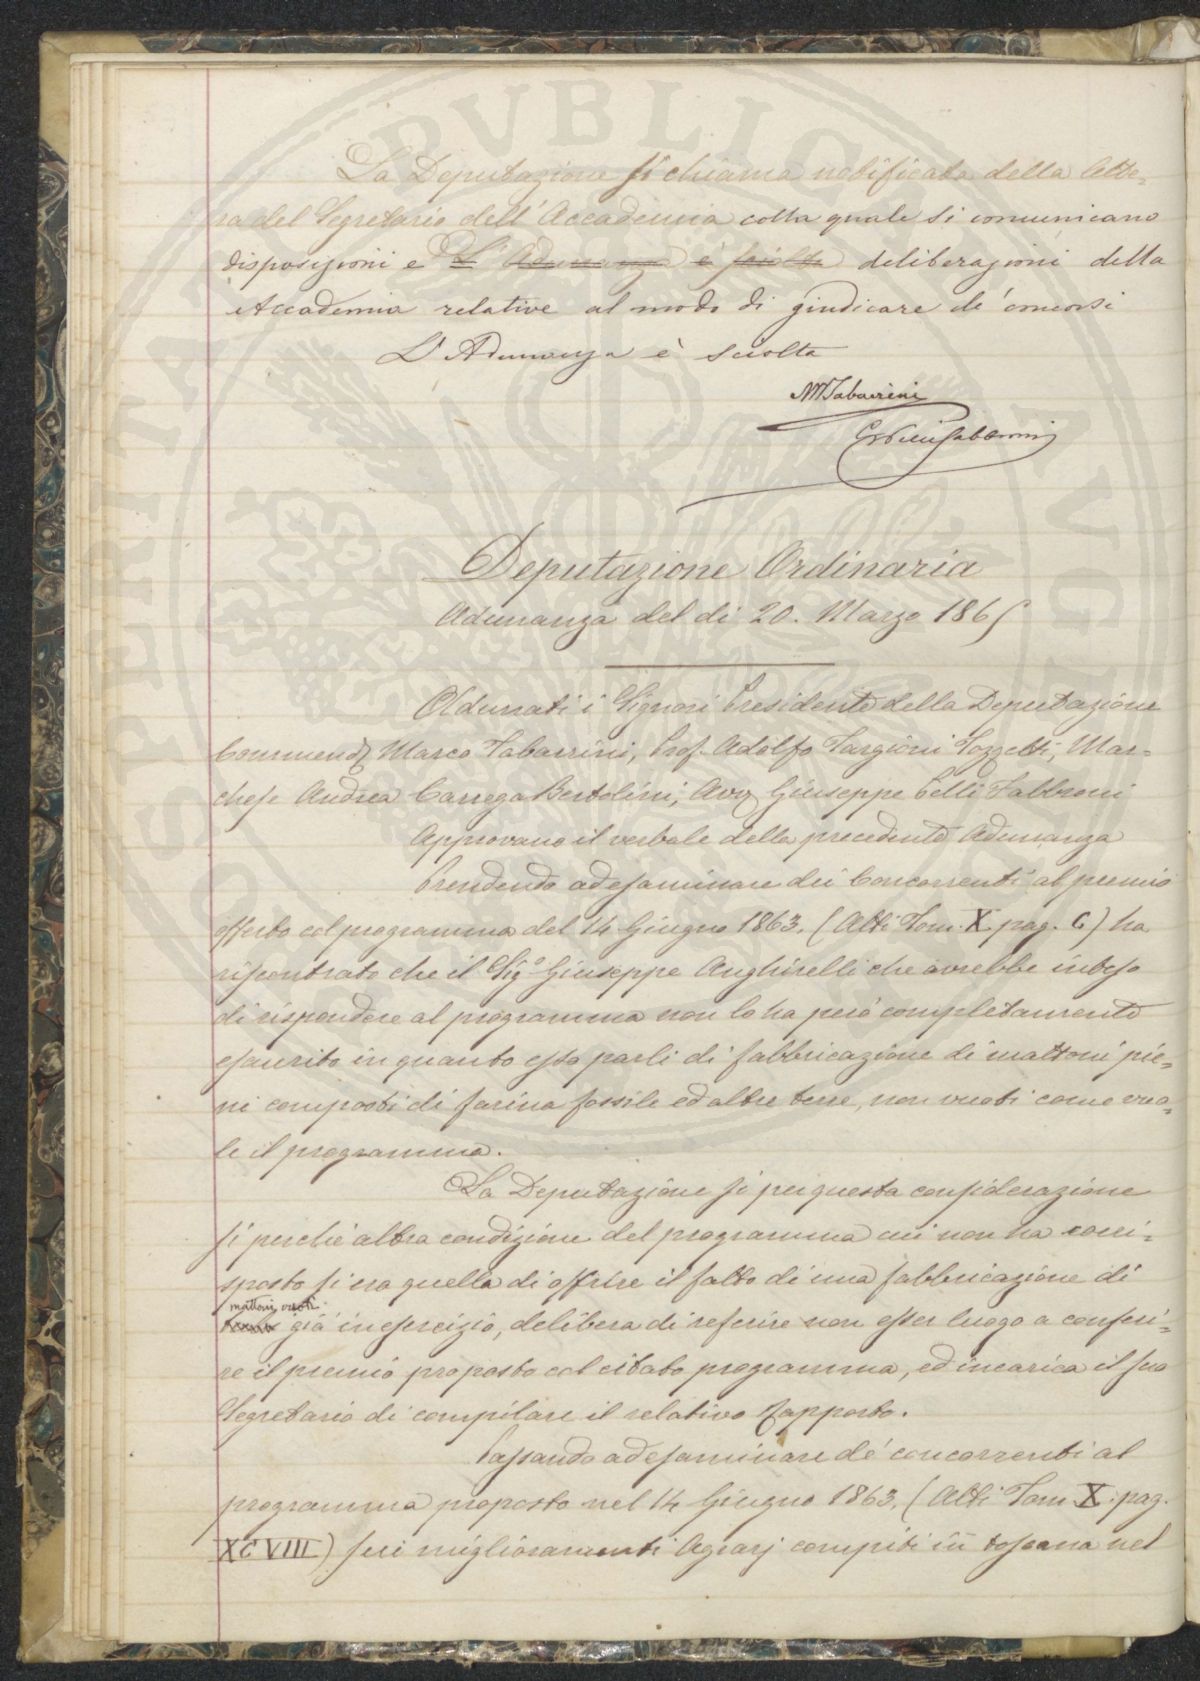 La Deputazione si chiama notificata della lette=
ra del Segretario dell'Accademia colla quale si comunicano
disposizioni e L'Adunanza è sciolta deliberazioni della
Accademia relative al modo di giudicare de' concorsi
L'Adunanza è sciolta
MTabarrini
Deputazione Ordinaria
Adunanza del di 20. Marzo 1865
Adunati i Signori Presidente della Deputazione
Commend Marco Tabarrini, Prof. Adolfo Targioni Tozzetti, Mar=
chese Andrea Carrega Bertolini, Avv Giuseppe Pelli Fabbroni
Approvano il verbale della precedente Adunanza
Prendendo ad esaminare dei Concorrenti al premio
offerto col programma del 14 Giugno 1863. (Atti Tom. X pag. C) ha
riscontrato che il Sigº Giuseppe Anghirelli che avrebbe inteso
di rispondere al programma non lo ha però completamente
esaurito in quanto esso parli di fabbricazione di mattoni pie=
ni composti di farina fossile ed altre terre, non vuoti come vuo=
le il programma.
La Deputazione si per questa considerazione
si perchè altra condizione del programma cui non ha corri=
sposto si era quella di offrire il fatto di una fabbricazione di
mattoni vuoti
già in esercizio, delibera di referire non esser luogo a conferi=
re il premio proposto col citato programma, ed incarica il suo
Segretario di compilare il relativo Rapporto.
Passando ad esaminare de' concorrenti al
programma proposto nel 14 Giugno 1863. (Atti Tom. X. pag.
XCVIII) sui miglioramenti Agrarj compiti in toscana nel